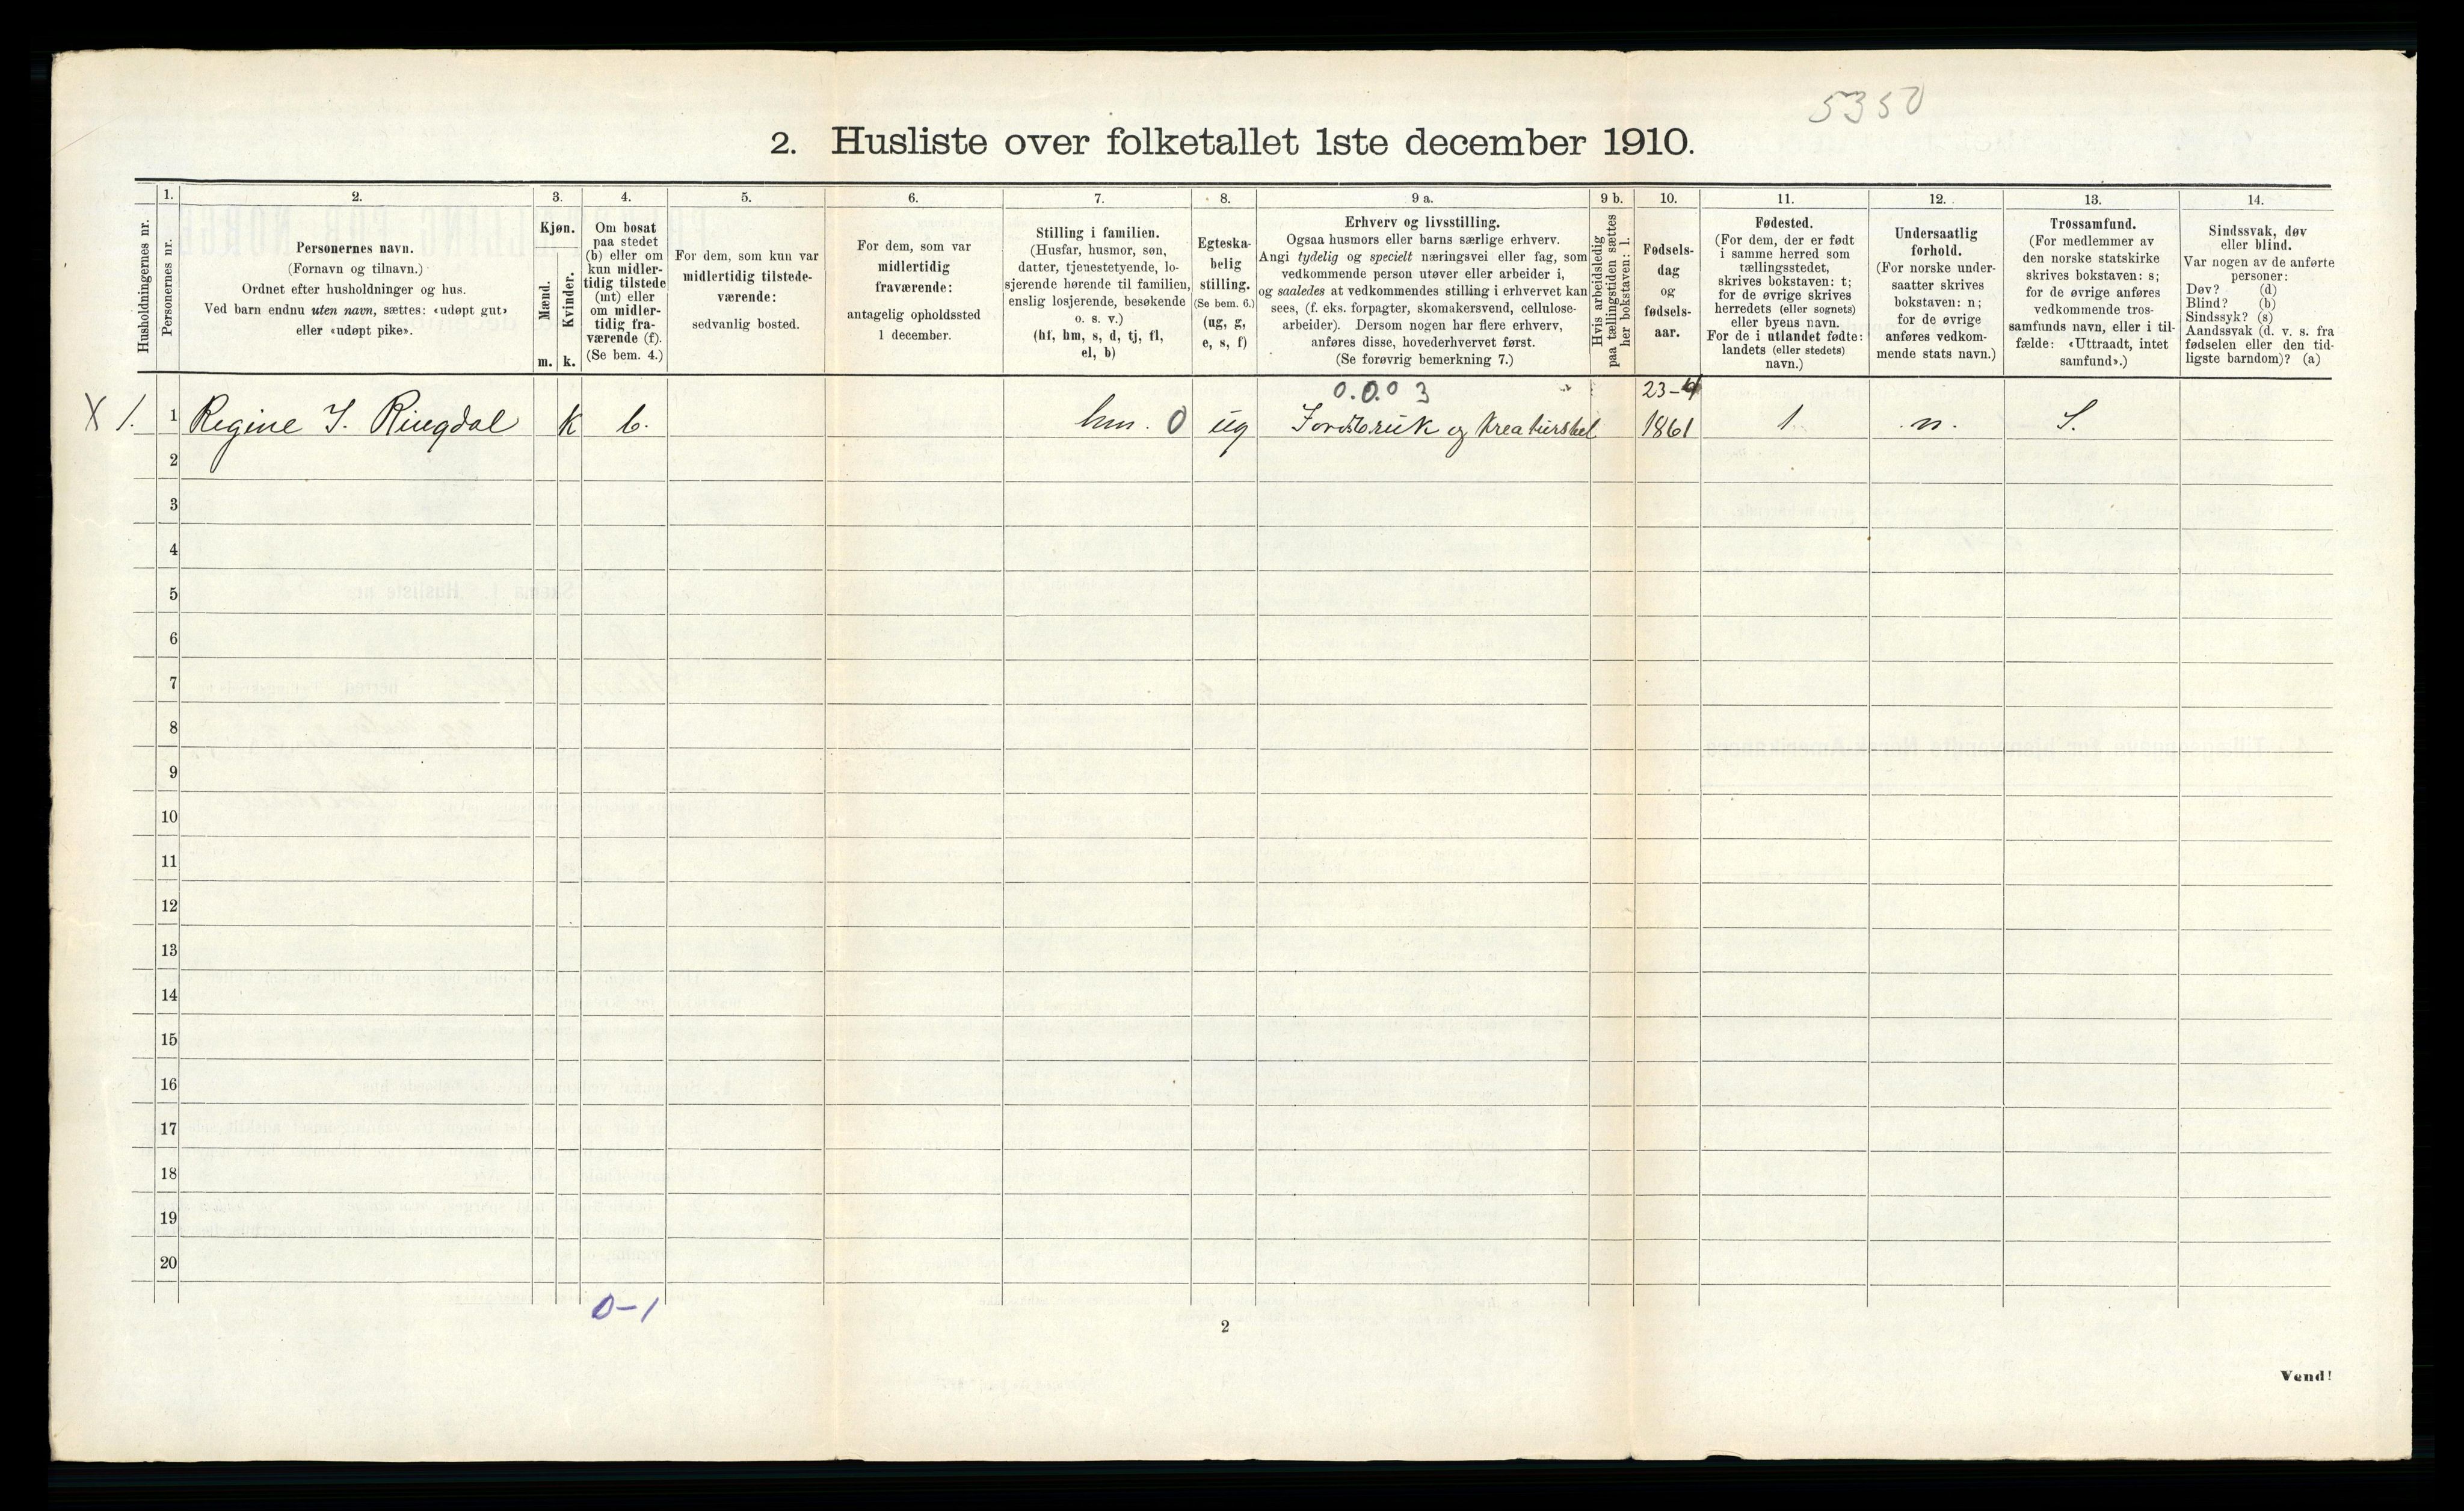 5350
2. Husliste over folketallet 1ste december 1910.
Husholdningernes nr.
1.
Personernes nr.
2.
Personernes navn.
(Fornavn og tilnavn.)
Ordnet efter husholdninger og hus.
Ved barn endnu uten navn, sættes: «udøpt gut»
eller «udøpt pike».
3.
Kjøn.
Mænd.
m.
Kvinder.
k.
4.
Om bosat
paa stedet
(b) eller om
kun midler-
tidig tilstede
(mt) eller
om midler-
tidig fra-
værende (f).
(Se bem. 4.)
5.
For dem, som kun var
midlertidig tilstede-
værende:
sedvanlig bosted.
6.
For dem, som var
midlertidig
fraværende:
antagelig opholdssted
1 december.
7.
Stilling i familien.
(Husfar, husmor, søn,
datter, tjenestetyende, lo-
sjerende hørende til familien,
enslig losjerende, besøkende
o. s. v.)
(hf, hm, s, d, tj, fl,
el, b)
8.
Egteska-
belig
stilling.
(Se bem. 6.)
(ug, g,
e, s, f)
9 a.
Erhverv og livsstilling.
Ogsaa husmors eller barns særlige erhverv.
Angi tydelig og specielt næringsvei eller fag, som
vedkommende person utøver eller arbeider i,
og saaledes at vedkommendes stilling i erhvervet kan
sees, (f. eks. forpagter, skomakersvend, cellulose-
arbeider). Dersom nogen har flere erhverv,
anføres disse, hovederhvervet først.
(Se forøvrig bemerkning 7.)
9 b.
Hvis arbeidsledig
paa tællingstiden sættes
her bokstaven: l.
10.
Fødsels-
dag
og
fødsels-
aar.
11.
Fødested.
(For dem, der er født
i samme herred som
tællingsstedet,
skrives bokstaven: t;
for de øvrige skrives
herredets (eller sognets)
eller byens navn.
For de i utlandet fødte:
landets (eller stedets)
navn.)
12.
Undersaatlig
forhold.
(For norske under-
saatter skrives
bokstaven: n;
for de øvrige
anføres vedkom-
mende stats navn.)
13.
Trossamfund.
(For medlemmer av
den norske statskirke
skrives bokstaven: s;
for de øvrige anføres
vedkommende tros-
samfunds navn, eller i til-
fælde: «Uttraadt, intet
samfund».)
14.
Sindssvak, døv
eller blind.
Var nogen av de anførte
personer:
Døv? (d)
Blind? (b)
Sindssyk? (s)
Aandssvak (d. v. s. fra
fødselen eller den tid-
ligste barndom)? (a)
0.0.0 3 23-4
X 1. 1 Regine I. Ringdal k b. hm. 0 ug Jordbruk og Kreaturstel 1861 t n. S.
2
3
4
5
6
7
8
9
10
11
12
13
14
15
16
17
18
19
20
0-1
2
Vend!